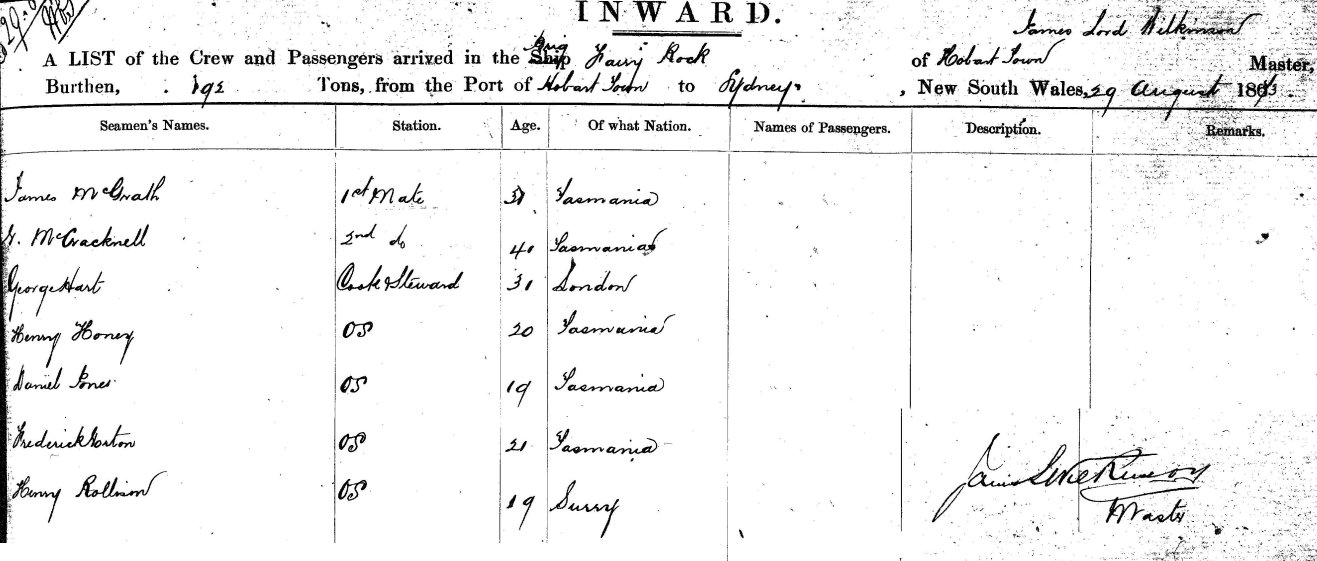 29.
INWARD.
James Lord Wilkinson
A LIST of the Crew and Passengers arrived in the Ship Brig Fairy Rock of Hobart Town Master,
Burthen, 192 Tons, from the Port of Hobart Town to Sydney , New South Wales, 29 August 187
Seamen's Names. Station. Age. Of what Nation. Names of Passengers. Description. Remarks.
James McGrath 1st Mate Tasmania
McCracknell 2nd do 40 Tasmania
George Hart Cook & Steward 31 London
Henry Honey OS 20 Tasmania
Daniel Jones OS 19 Tasmania
Frederick Gorton OS 21 Tasmania
Henry Rollison OS 19 Surry
James L Wilkinson
Master